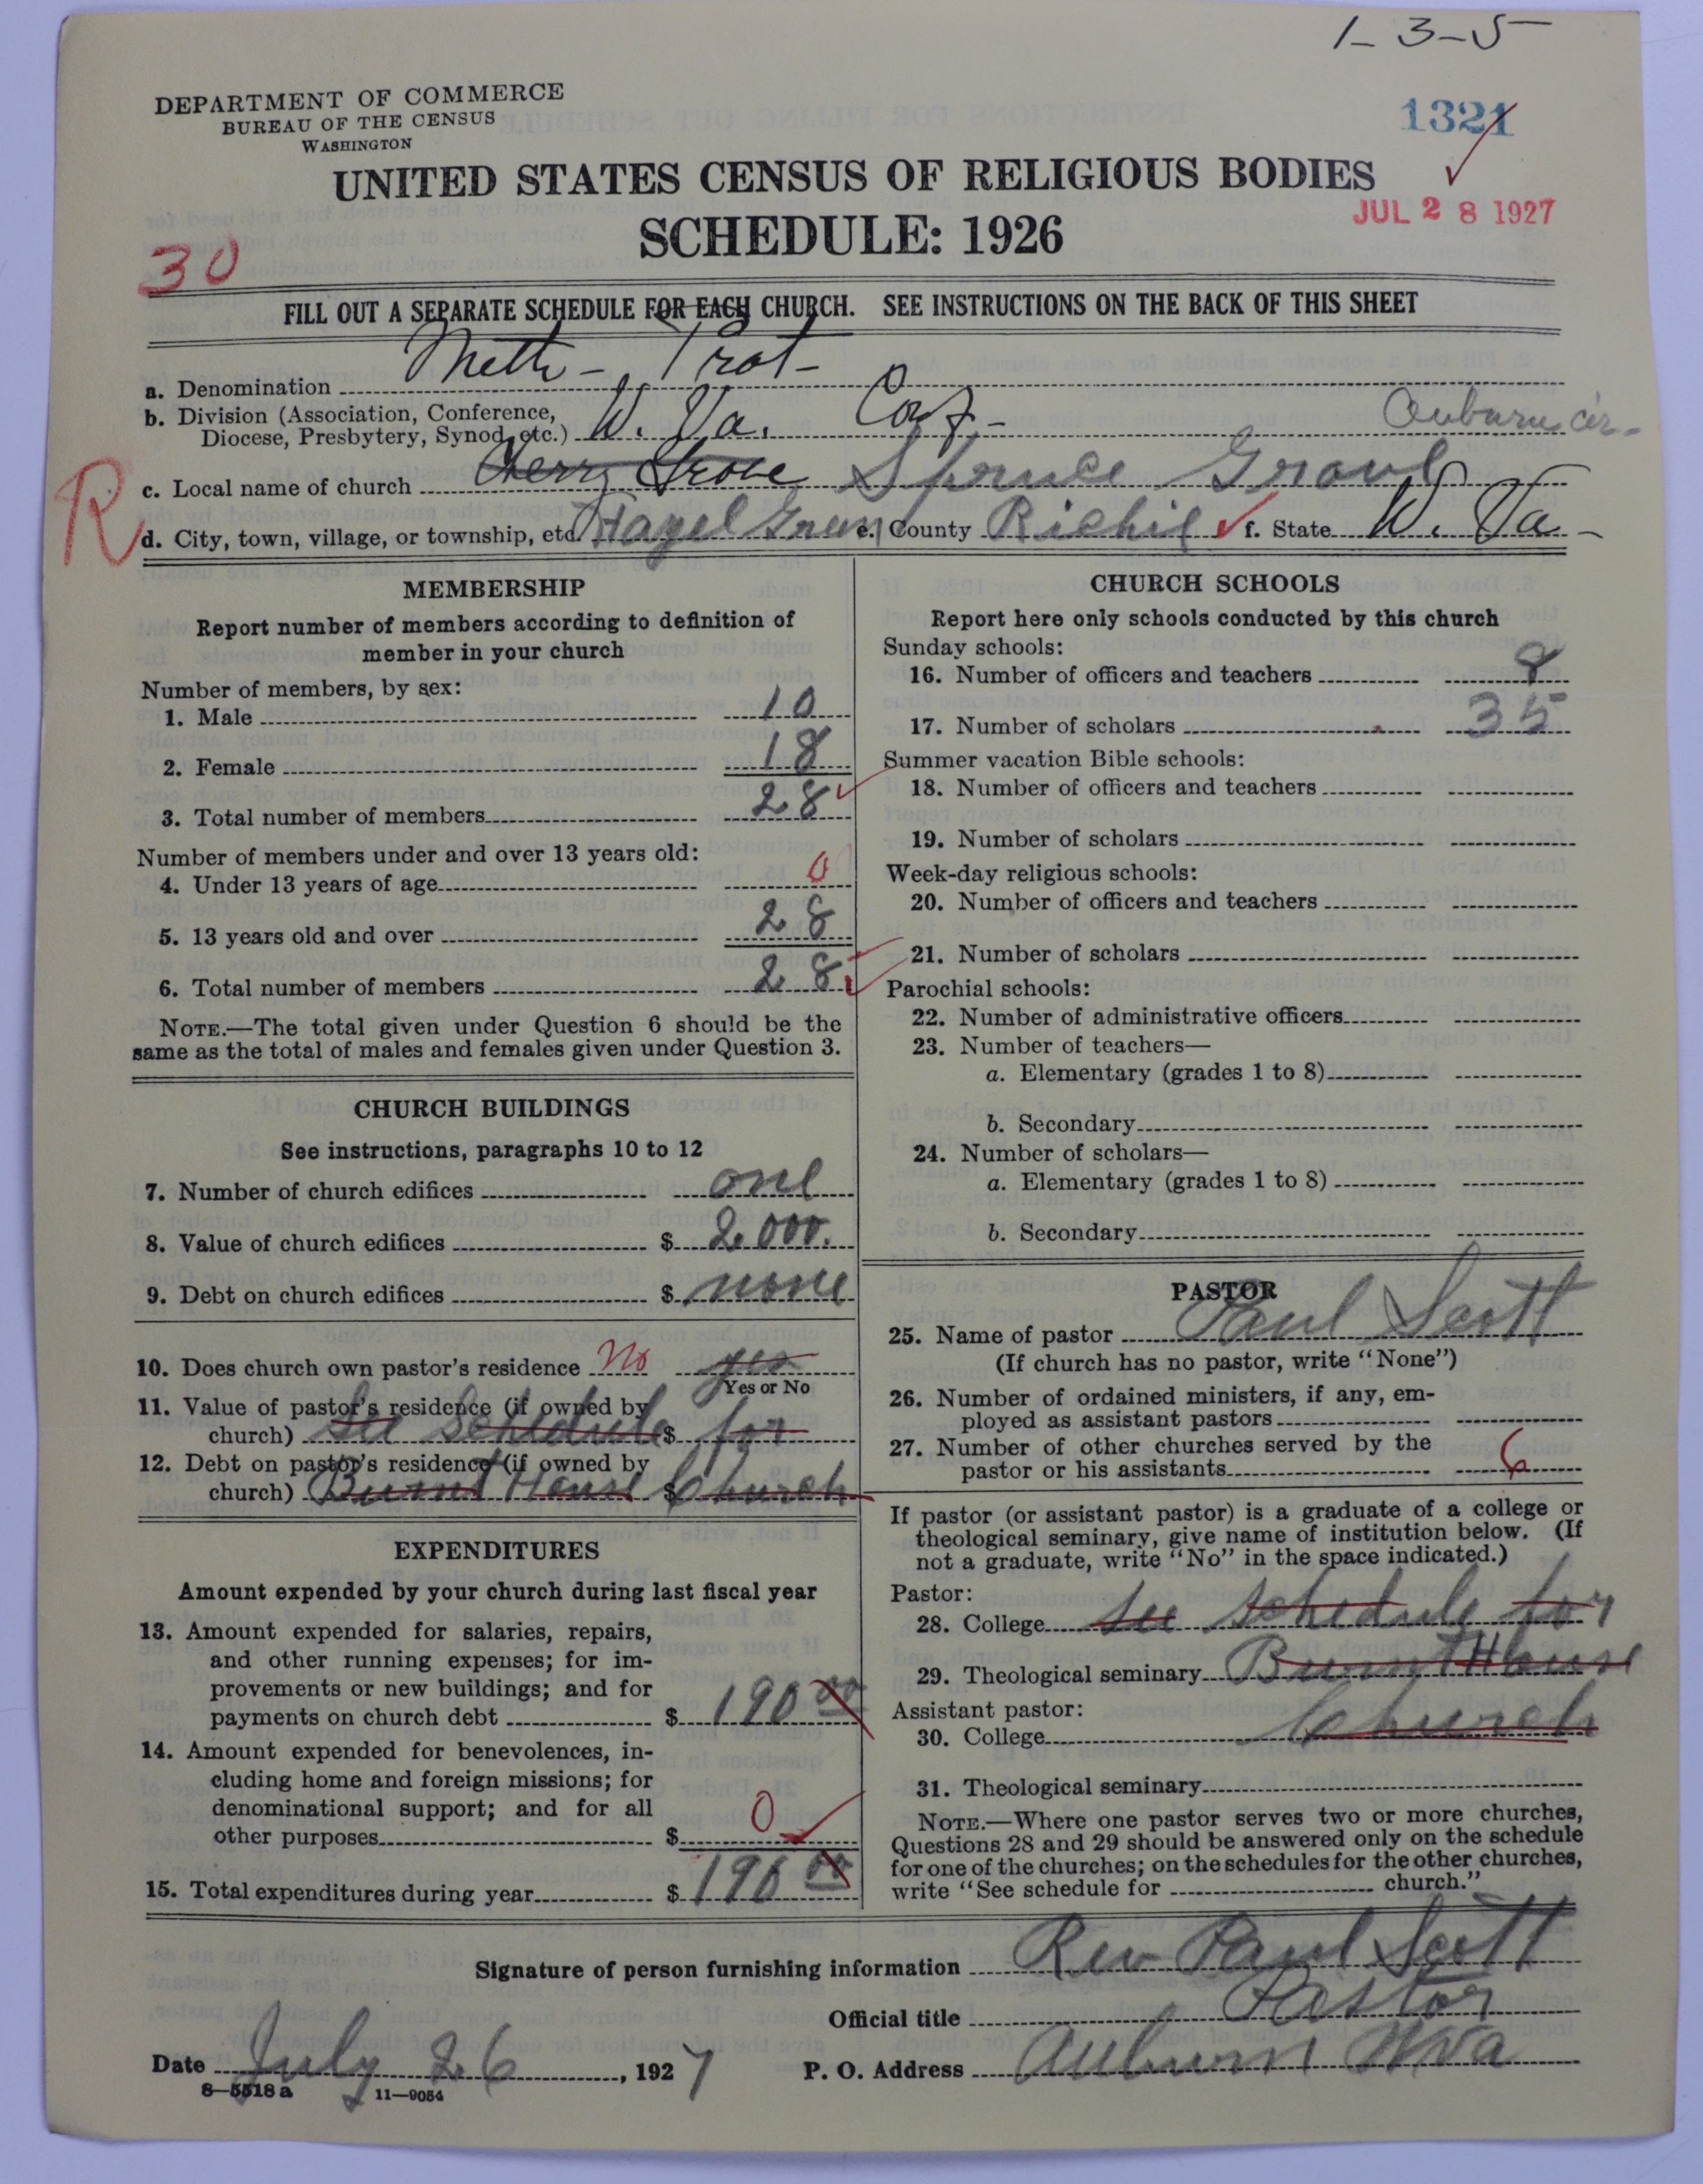 1-3-5
DEPARTMENT OF COMMERCE
BUREAU OF THE CENSUS
WASHINGTON
1321
UNITED STATES CENSUS OF RELIGIOUS BODIES
SCHEDULE: 1926
JUL 28 1927
30
FILL OUT A SEPARATE SCHEDULE FOR EACH CHURCH. SEE INSTRUCTIONS ON THE BACK OF THIS SHEET
a. Denomination Meth - Prot -
b. Division (Association, Conference,
Diocese, Presbytery, Synod, etc.) W. Va. Conf - Auburn cir-
R
c. Local name of church Cherry Grove Spruce Grove
d. City, town, village, or township, etc. Hazel Green e. County Richie f. State W. Va -
MEMBERSHIP
Report number of members according to definition of
member in your church
Number of members, by sex:
1. Male 10
2. Female 18
3. Total number of members 28
Number of members under and over 13 years old:
4. Under 13 years of age 0
5. 13 years old and over 28
6. Total number of members 28
NOTE.—The total given under Question 6 should be the
same as the total of males and females given under Question 3.
CHURCH BUILDINGS
See instructions, paragraphs 10 to 12
7. Number of church edifices one
8. Value of church edifices $ 2000.
9. Debt on church edifices $ none
10. Does church own pastor's residence No yes
Yes or No
11. Value of pastor's residence (if owned by
church) See Schedule $ for
12. Debt on pastor's residence (if owned by
church) Burnt House $ Church
EXPENDITURES
Amount expended by your church during last fiscal year
13. Amount expended for salaries, repairs,
and other running expenses; for im-
provements or new buildings; and for
payments on church debt $ 190 00
14. Amount expended for benevolences, in-
cluding home and foreign missions; for
denominational support; and for all
other purposes $ 0
15. Total expenditures during year $ 190 00
CHURCH SCHOOLS
Report here only schools conducted by this church
Sunday schools:
16. Number of officers and teachers 8
17. Number of scholars 35
Summer vacation Bible schools:
18. Number of officers and teachers
19. Number of scholars
Week-day religious schools:
20. Number of officers and teachers
21. Number of scholars
Parochial schools:
22. Number of administrative officers
23. Number of teachers—
a. Elementary (grades 1 to 8)
b. Secondary
24. Number of scholars—
a. Elementary (grades 1 to 8)
b. Secondary
PASTOR
25. Name of pastor Paul Scott
(If church has no pastor, write "None")
26. Number of ordained ministers, if any, em-
ployed as assistant pastors
27. Number of other churches served by the
pastor or his assistants 6
If pastor (or assistant pastor) is a graduate of a college or
theological seminary, give name of institution below. (If
not a graduate, write "No" in the space indicated.)
Pastor:
28. College See schedule for
29. Theological seminary Burnt House
Assistant pastor:
30. College Church
31. Theological seminary
NOTE.—Where one pastor serves two or more churches,
Questions 28 and 29 should be answered only on the schedule
for one of the churches; on the schedules for the other churches,
write "See schedule for church."
Signature of person furnishing information Rev Paul Scott
Official title Pastor
Date July 26, 1927 P. O. Address Auburn WVa
8—5518 a 11—9054